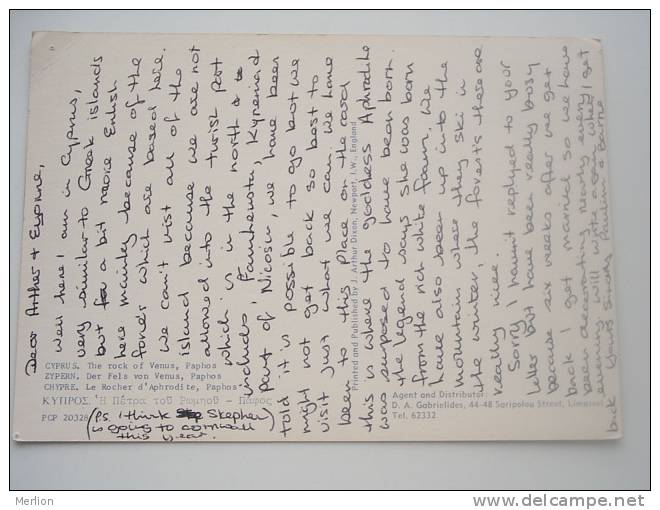 Dear Arther & Eyprune,
well here I am in Cyprus,
very similar to Greek islands
but for a bit more Enlish
here mainly because of the
forces which are based here.
we can't vist all of the
island because we are not
allowed into the turist part
which is in the north & to
includs, Famhensta, Kyreniad
part of Nicosia, we have been
told it is possible to go but we
might not get back so best to
visit just what we can. We have
been to this place on the road
this is where the goddess Aphrodite
was surposed to have been born.
the legend says she was born
from the rich white foam, We
have also been up into the
mountain where they ski in
the winter, the forests there are
really nice.
Sorry I haunt replyed to your
letter but have been really busy
because six weeks after we get
back I get married so we have
been decorating nearly every
evening will write again when I get
back Yours sincds Pauline & Barrie
(P.S. I think Stepher
is going to cornwall
this year.
CYPRUS. The rock of Venus, Paphos
ZYPERN. Der Fels von Venus, Paphos
CHYPRE. Le Rocher d'Aphrodite, Paphos
ΚΥΠΡΟΣ. Ἡ Πέτρα τοῦ Ρωμηοῦ - Πάφος
PCP 20328
Printed and Published by J. Arthur Dixon, Newport, I.W., England
Agent and Distributor:
D. A. Gabrielides, 44-48 Saripolou Street, Limassol
Tel. 62332
Merlion
www.delcampe.net